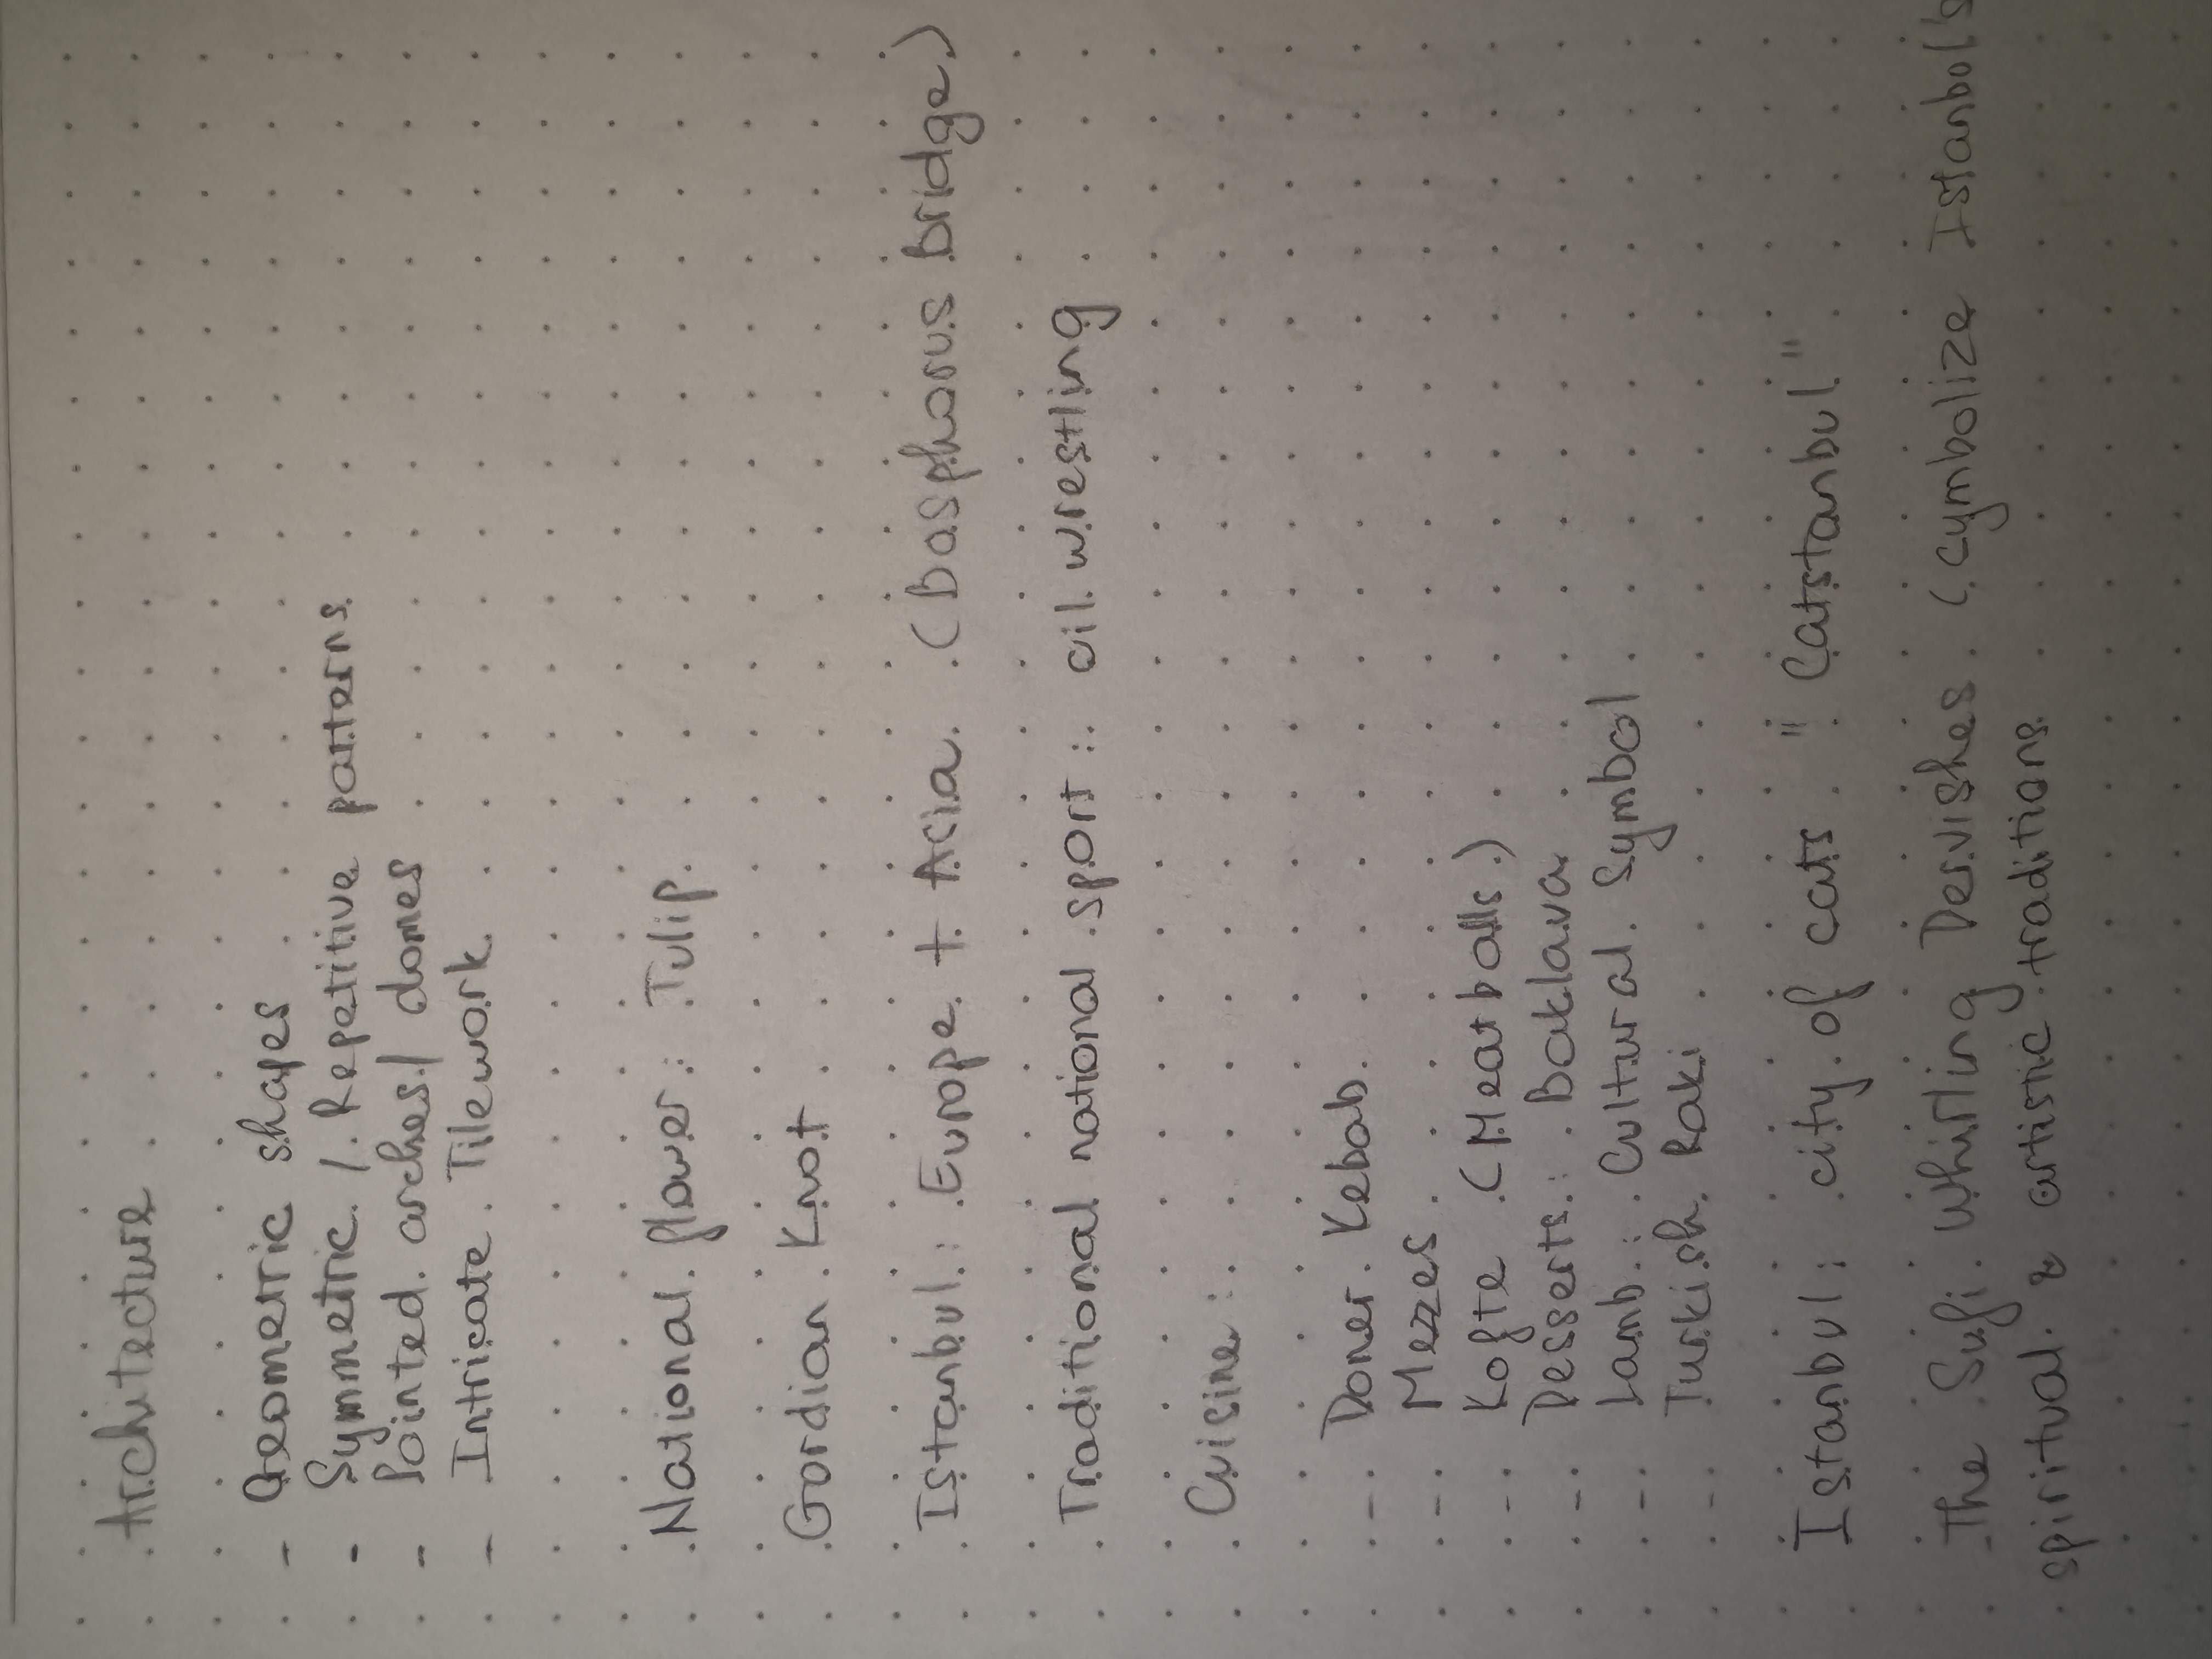 Architecture
- Geometric shapes
- Symmetric / Repetitive patterns
- Pointed arches / domes
- Intricate Tilework
National flower: Tulip
Gordian Knot
Istanbul: Europe + Acia (Bosphorus Bridge)
Traditional national sport: oil wrestling
Cuisine:
- Doner Kebab
- Mezzes
- Kofte (Meatballs)
- Desserts: Baklava
- Lamb: Cultural Symbol
- Turkish Raki
Istanbul: city of cats "Catstanbul"
The Sufi Whirling Dervishes (cymbolize Istanbul's
spiritual & artistic traditions